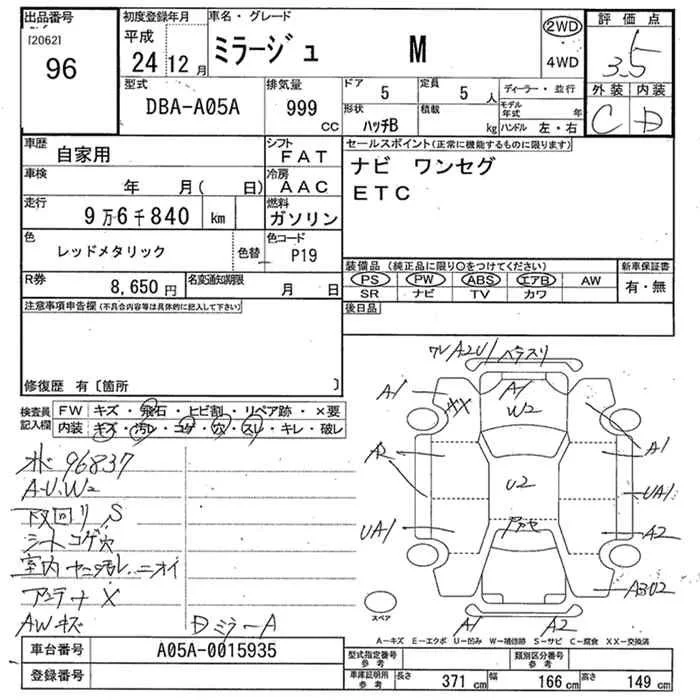 出品番号
[2062]
96
初度登録年月
平成
24 12月
車名・グレード
ミラージュ M
2WD
4WD
評価点
3.5
外装 内装
C D
型式
DBA-A05A
排気量
999
cc
ドア 5
定員 5 人
形状 ハッチB
積載 kg
ディーラー・並行
モデル年式 年
ハンドル 左・右
車歴 自家用
シフト FAT
車検 年 月( 日)
冷房 AAC
走行 9万6千840 km
燃料 ガソリン
色 レッドメタリック
色替
色コード P19
R券 8,650円
名変通知期限 月 日
セールスポイント(正常に機能するものに限ります)
ナビ ワンセグ
ETC
装備品 (純正品に限り○をつけてください)
PS PW ABS エアB AW
SR ナビ TV カワ
新車保証書
有・無
後日品
注意事項申告欄(不具合内容等は具体的に記入して下さい)
修復歴 有〔箇所 〕
検査員記入欄
FW キズ・飛石・ヒビ割・リペア跡・×要
内装 キズ・汚レ・コゲ・穴・スレ・キレ・破レ
96837
A・U・W2
下回り S
シートコゲ穴
室内ヤニ汚レ、ニオイ
アンテナ X
AWキズ
DミラーA
ワレA2U1 ヘラスリ
A1
AX
A1
W2
A1
A2
U2
UA1
UA1
A2
A1
A2
スペア
A-キズ E-エクボ U-凹み W-補修跡 S-サビ C-腐食 XX-交換済
車台番号 A05A-0015935
登録番号
型式指定番号 参考
類別区分番号 参考
車庫証明用 参考
長さ 371 cm
幅 166 cm
高さ 149 cm